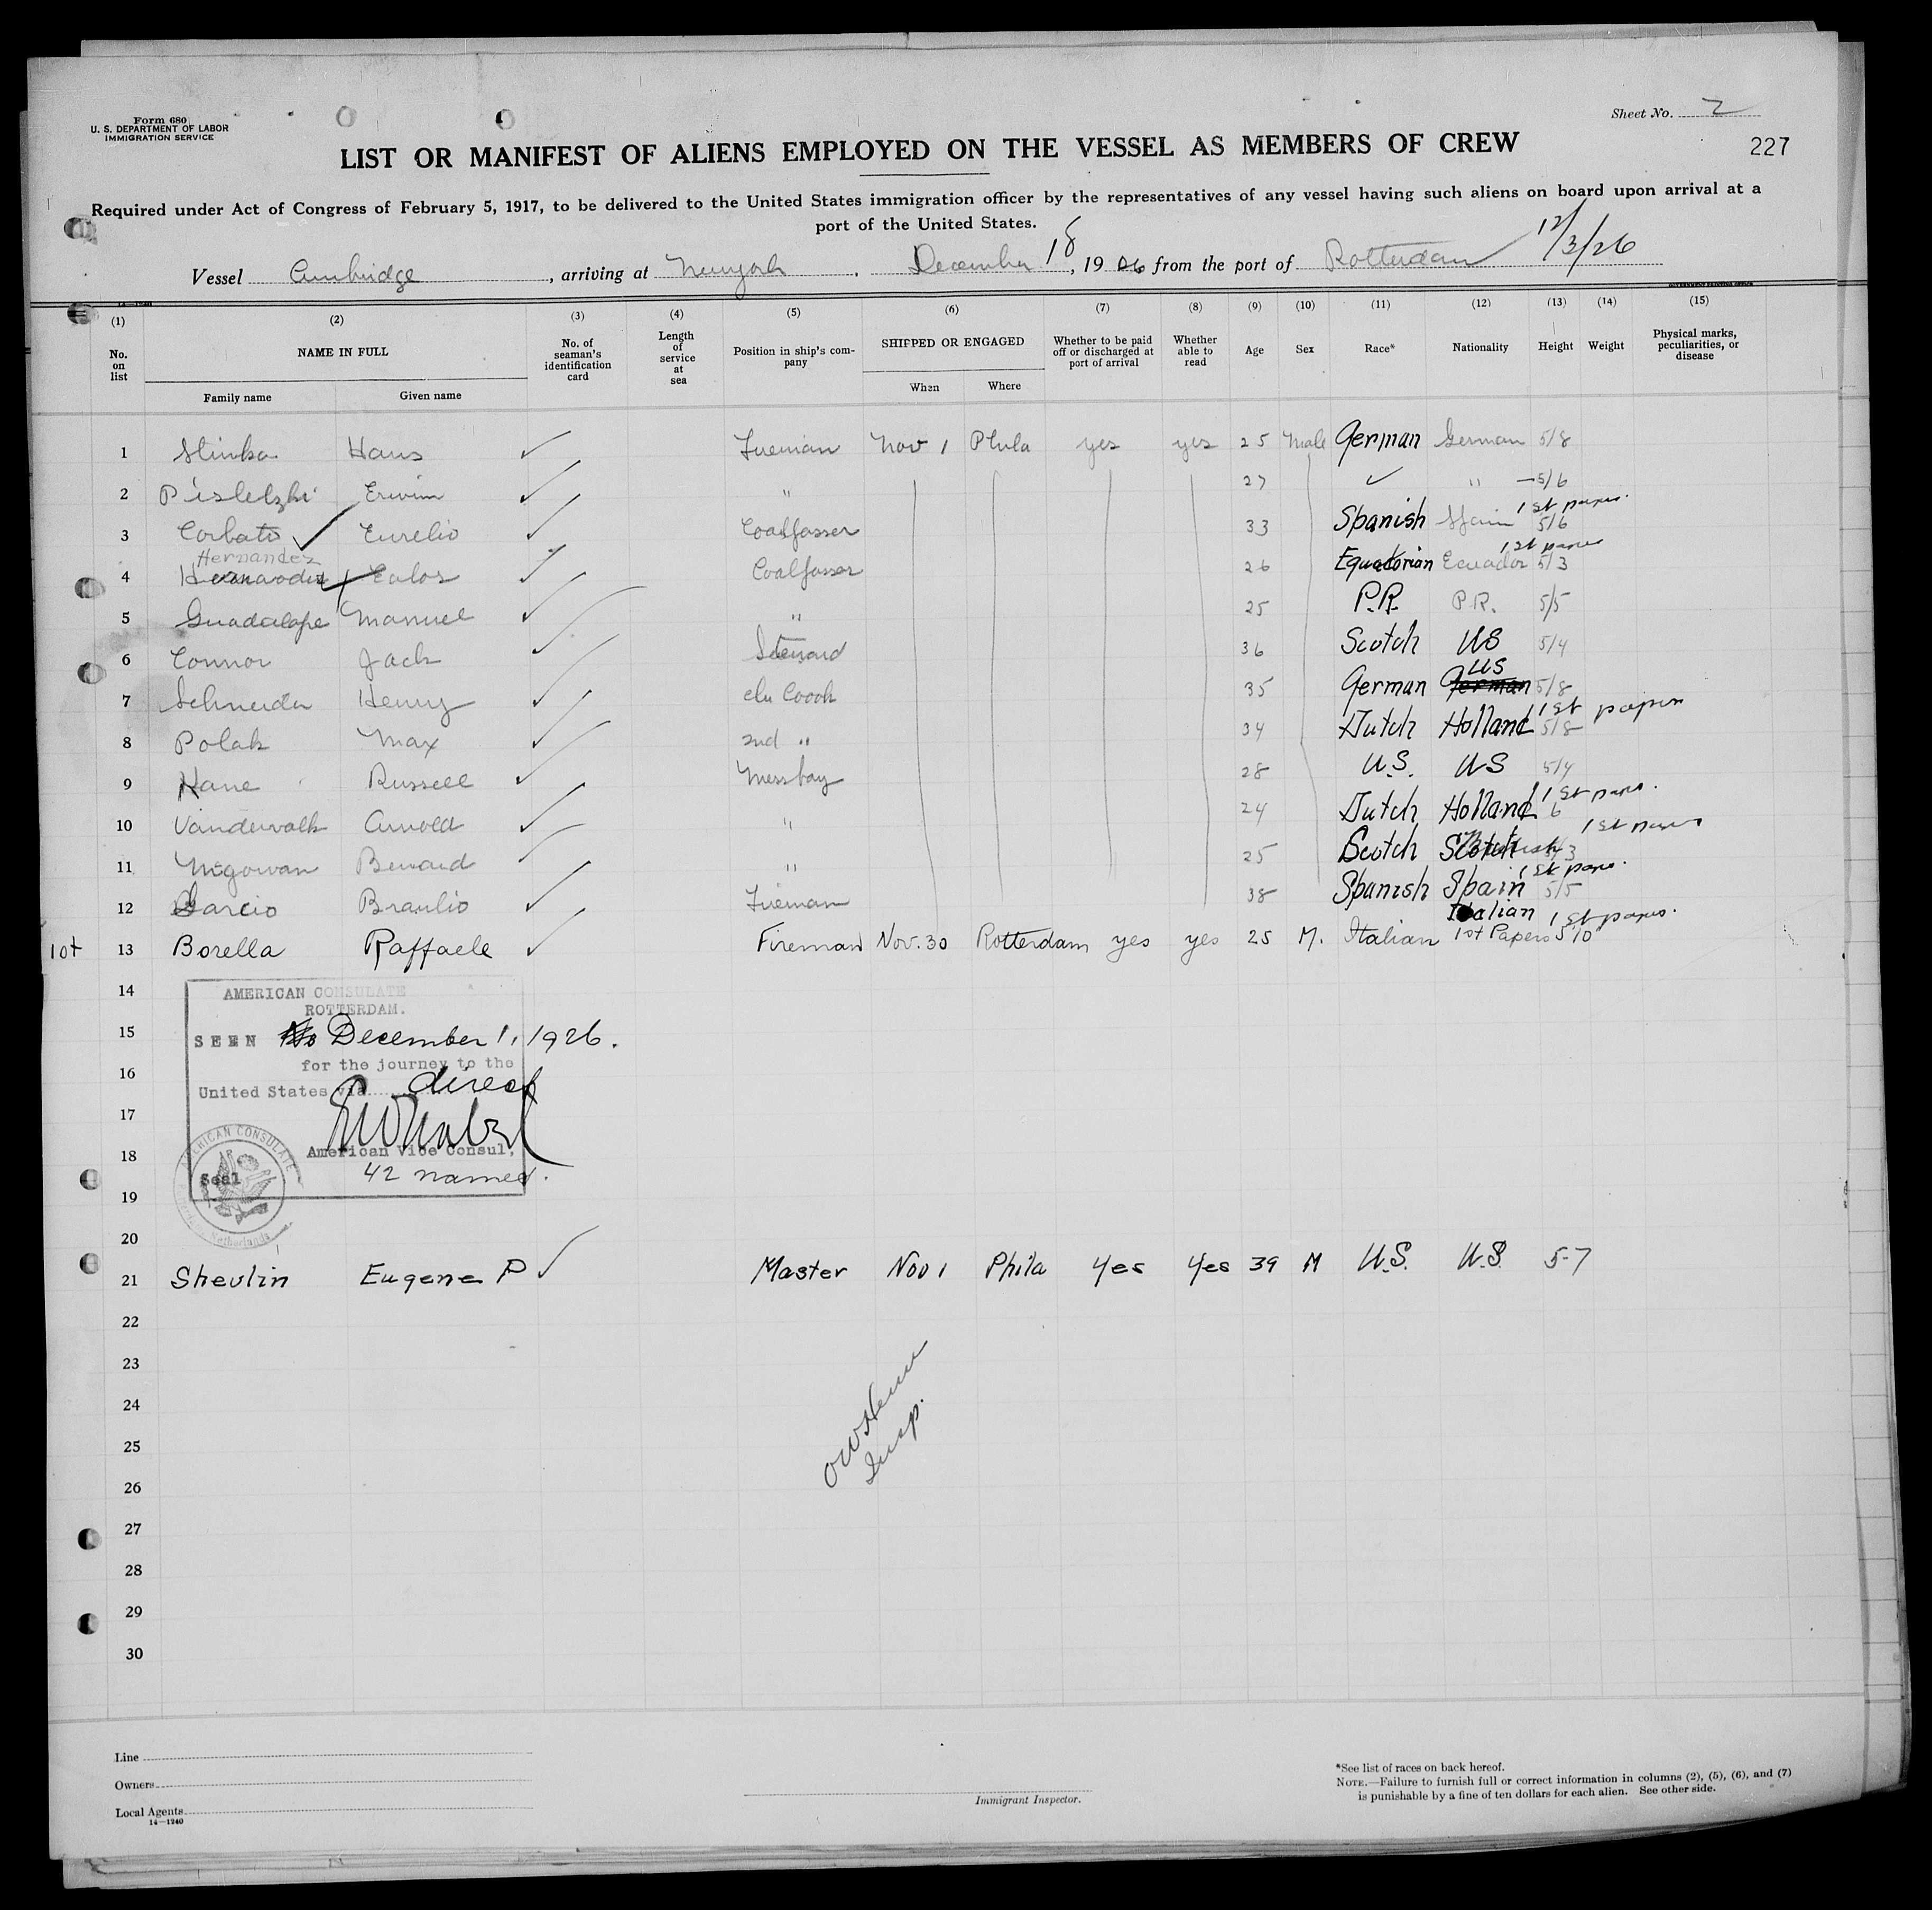 Form 680
U. S. DEPARTMENT OF LABOR
IMMIGRATION SERVICE
Sheet No. 2
LIST OR MANIFEST OF ALIENS EMPLOYED ON THE VESSEL AS MEMBERS OF CREW
227
Required under Act of Congress of February 5, 1917, to be delivered to the United States immigration officer by the representatives of any vessel having such aliens on board upon arrival at a
port of the United States.
12/3/26
Vessel Cambridge, arriving at New york, December 18, 1926 from the port of Rotterdam
(1) (2) (3) (4) (5) (6) (7) (8) (9) (10) (11) (12) (13) (14) (15)
No. on list NAME IN FULL Family name Given name No. of seaman's identification card Length of service at sea Position in ship's company SHIPPED OR ENGAGED When Where Whether to be paid off or discharged at port of arrival Whether able to read Age Sex Race* Nationality Height Weight Physical marks, peculiarities, or disease
1 Hans ✓ Fireman Nov 1 Phila yes yes 25 Male German German 5/8
2 Erwin ✓ " 27 ✓ " 5/6
3 Corbato ✓ Eurelio ✓ Coalpasser 33 Spanish Spain 5/6 1st papers.
Hernandez
4 Hernandez Calos ✓ Coalpasser 26 Equatorian Ecuador 5/3 1st papers
5 Guadalope Manuel ✓ " 25 P.R. P.R. 5/5
6 Connor Jack ✓ Steward 36 Scotch US 5/4
7 Schneider Henry ✓ ch Coook 35 German German US 5/8
8 Polak Max ✓ 2nd " 34 Dutch Holland 5/8 1st papers
9 Hane Russell ✓ Messboy 28 U.S. US 5/4
10 Vanderwalk Arnold ✓ " 24 Dutch Holland 6 1st papers.
11 McGowan Benard ✓ " 25 Scotch Scotch 1st papers
12 Garcio Braulio ✓ Fireman 38 Spanish Spain 5/5 1st papers.
Italian 1st papers.
10+ 13 Borella Raffaele ✓ Fireman Nov. 30 Rotterdam yes yes 25 M. Italian 1st Papers 5'10
14
AMERICAN CONSULATE
ROTTERDAM.
15
SEEN December 1, 1926.
for the journey to the
16
United States via direct
17
American Vice Consul,
18
42 names.
Seal
AMERICAN CONSULATE
Netherlands
19
20
21 Shevlin Eugene P ✓ Master Nov 1 Phila Yes Yes 39 M U.S. U.S. 5-7
22
23
24
Insp.
25
26
27
28
29
30
Line
Owners
Local Agents
14—1240
Immigrant Inspector.
*See list of races on back hereof.
NOTE.—Failure to furnish full or correct information in columns (2), (5), (6), and (7)
is punishable by a fine of ten dollars for each alien. See other side.